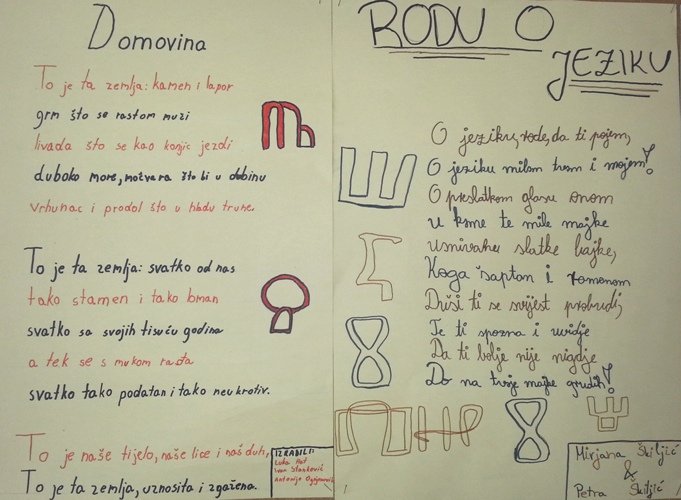 Domovina
To je ta zemlja: kamen i lapor
grm što se rastom muzi
livada što se kao konjic jezdi
duboko more, močvara što bi u dubinu
vrhunac i prodol što u hladu trune.
To je ta zemlja: svatko od nas
tako stamen i tako krhan
svatko sa svojih tisuću godina
a tek se s mukom rađa
svatko tako podatan i tako neukrotiv.
To je naše tijelo, naše lice i naš duh,
To je ta zemlja, uznosita i zgažena.
IZRADILI:
Ivan Stanković
Antonijo
RODU O
JEZIKU
O jeziku, rode, da ti pojem,
O jeziku milom tvom i mojem!
O preslatkom glasu onom
u kome te mile majke
usnivahu slatke bajke,
Koga šaptom i romonom
Duši ti se svijest probudi,
Te ti spozna i uvidje
Da ti bolje nije nigdje
Do na tvoje majke grudih!
Mirjana Škiljić
&
Petra Škiljić